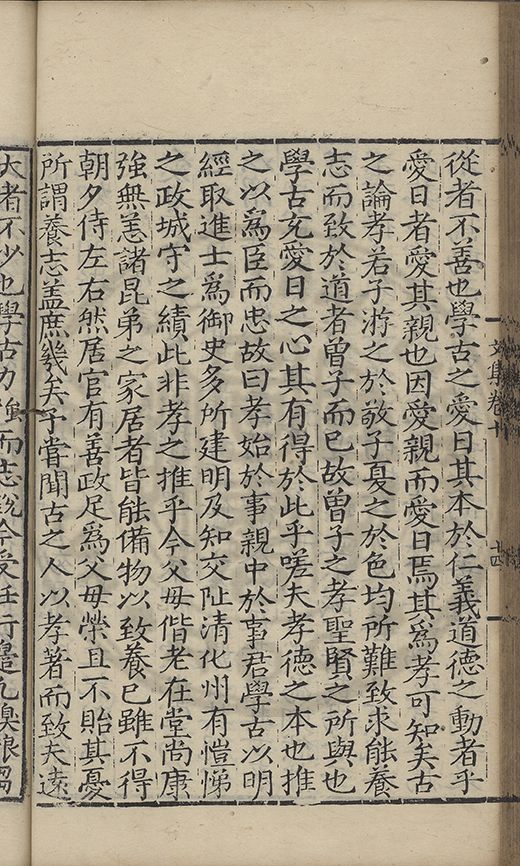 文集卷十
十四
從者不善也學古之愛日其本於仁義道德之動者乎
愛日者愛其親也因愛親而愛日焉其爲孝可知矣古
之論孝若子游之於敬子夏之於色均所難致求能養
志而致於道者曾子而已故曾子之孝聖賢之所與也
學古充愛日之心其有得於此乎嗟夫孝德之本也推
之以爲臣而忠故曰孝始於事親中於事君學古以明
經取進士爲御史多所建明及知交阯清化州有愷悌
之政城守之績此非孝之推乎今父母偕老在堂尚康
強無恙諸昆弟之家居者皆能備物以致養已雖不得
朝夕侍左右然居官有善政足爲父母榮且不貽其憂
所謂養志盖庶幾矣予嘗聞古之人以孝著而致夫遠
大者不少也學古力強而志銳今受任行